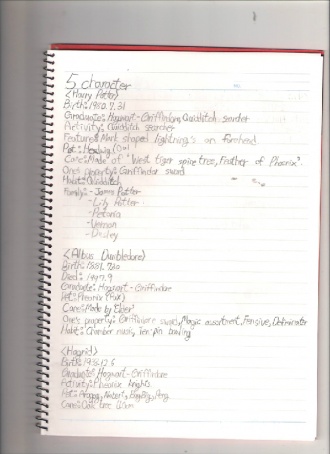 5 character
<Harry Potter>
Birth: 1980. 7. 31
Graduate: Hogwart - Griffindore, Quidditch searcher
Activity: Quidditch searcher
Feature: Mark shaped lightning's on forehead.
Pet: Hedwig (Owl)
Cane: Made of "West tiger spine tree, Feather of Phoenix"
One's property: Griffindor sword
Habit: Quidditch
Family: - James Potter
- Lily Potter
- Petunia
- Vernon
- Dudley
<Albus Dumbledore>
Birth: 1881.
Died: 1997. 9
Graduate: Hogwart - Griffindore
Pet: Phoenix (Fox)
Cane: Made by "Elder"
One's property: Griffindore sword, Magic assortment, Pensive, Deluminator
Habit: Chamber music, Ten-pin bowling
<Hagrid>
Birth: 1928. 12. 6
Graduate: Hogwart - Griffindore
Activity: Pheonix knights
Pet: Aragog, Norbert,
Cane: Oak tree